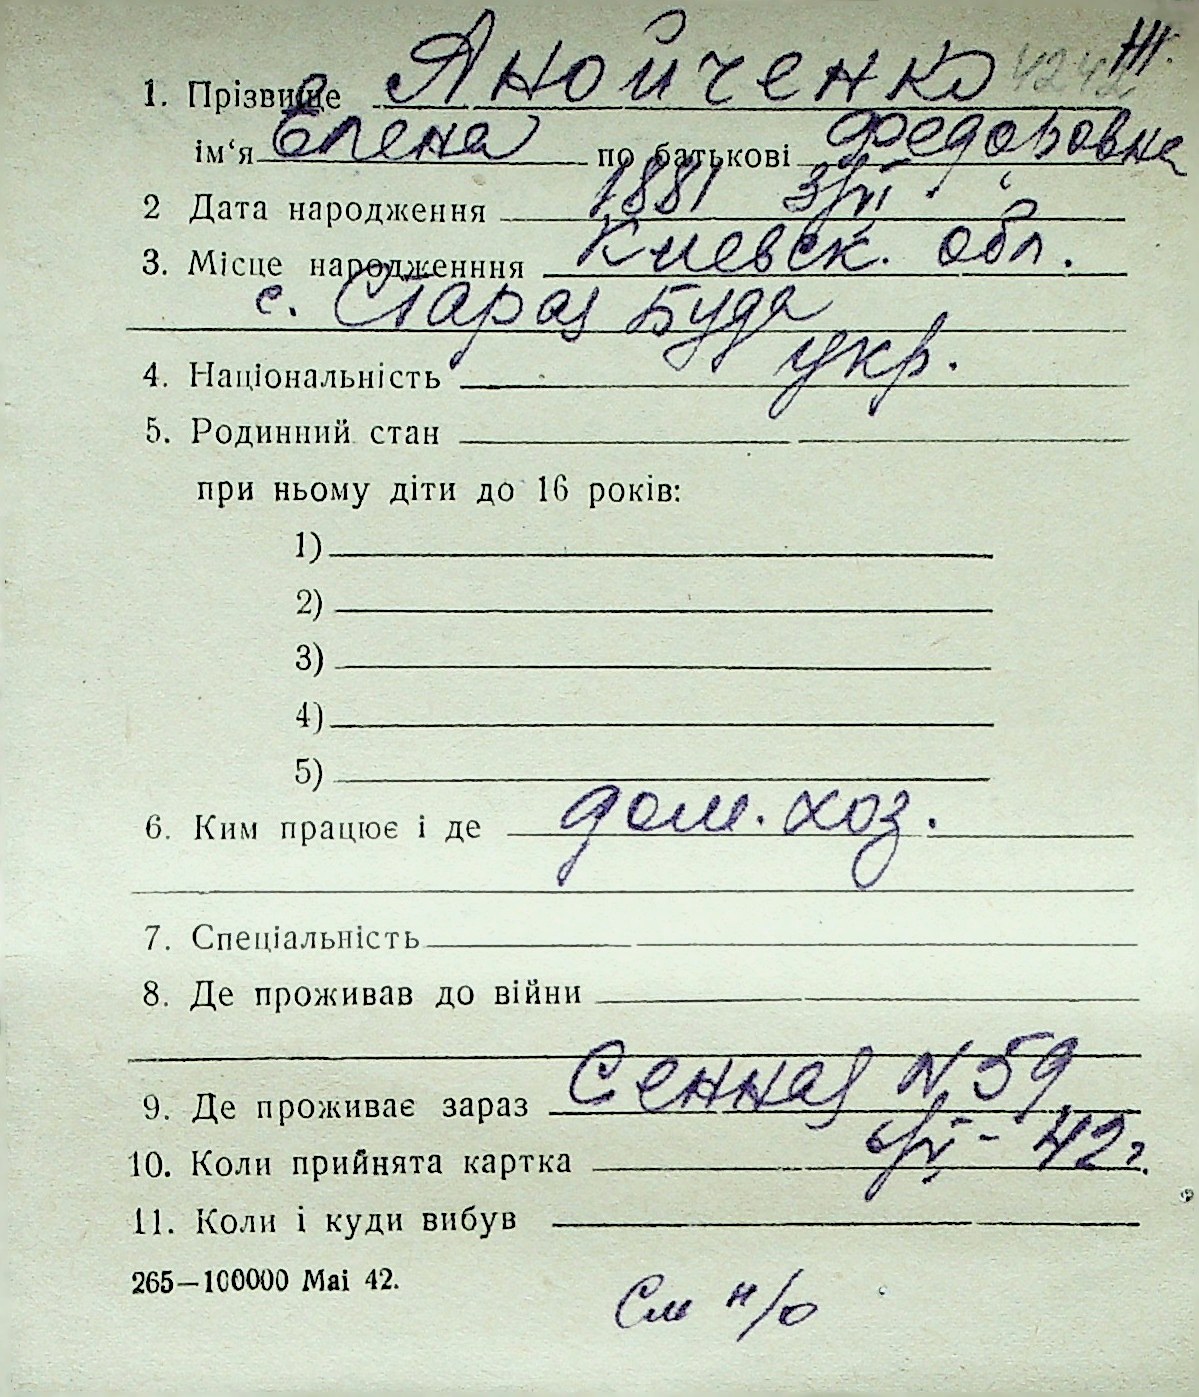 1. Прізвище Янойченко 4242 Ж.
ім‘я Елена по батькові Федоровна
2 Дата народження 1881 3/VI
3. Місце народженння Киевск. обл.
с. Старая Буда
4. Національність укр.
5. Родинний стан
при ньому діти до 16 років:
1)
2)
3)
4)
5)
6. Ким працює і де дом. хоз.
7. Спеціальність
8. Де проживав до війни
9. Де проживає зараз Сенная N 59
10. Коли прийнята картка 42 г.
11. Коли і куди вибув
265—100000 Маі 42.
См н/о